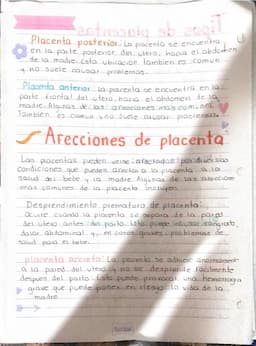 Placenta posterior: La placenta se encuentra
en la parte posterior del utero, hacia el abdomen
de la madre. Esta ubicacion tambien es comun
y no suele causar problemas.
Placenta anterior: La placenta se encuentra en la
parte frontal del utero, hacia el abdomen de la
madre. Algunas de las afecciones mas comunes
Tambien es comun y no suele causar problemas.
Arecciones de placenta
Las placentas pueden verse afectadas por diversas
condiciones que pueden afectar a la placenta, a la
salud del bebe y la madre. Algunas de las afecciones
mas comunes de la placenta incluyen.
Desprendimiento prematuro de placenta:
Ocurre cuando la placenta se separa de la pared
del utero antes del parto. Esto puede causar sangrado
dolor abdominal y, en casos graves problemas de
salud para el bebe.
placenta accreta: La placenta se adhiere anormalmente
a la pared del utero y no se desprende facilmente
despues del parto. Esto puede provocar una hemorragia
grave que puede poner en riesgo la vida de la
madre